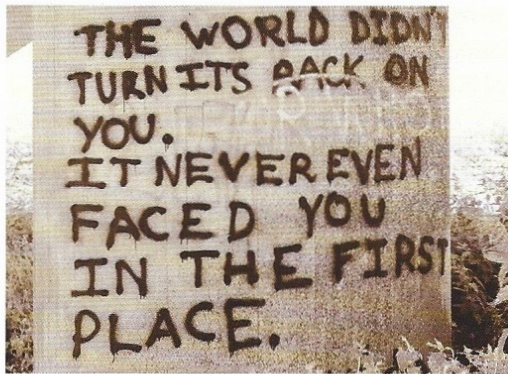 THE WORLD DIDN'T
TURN ITS BACK ON
YOU.
IT NEVER EVEN
FACED YOU
IN THE FIRST
PLACE.